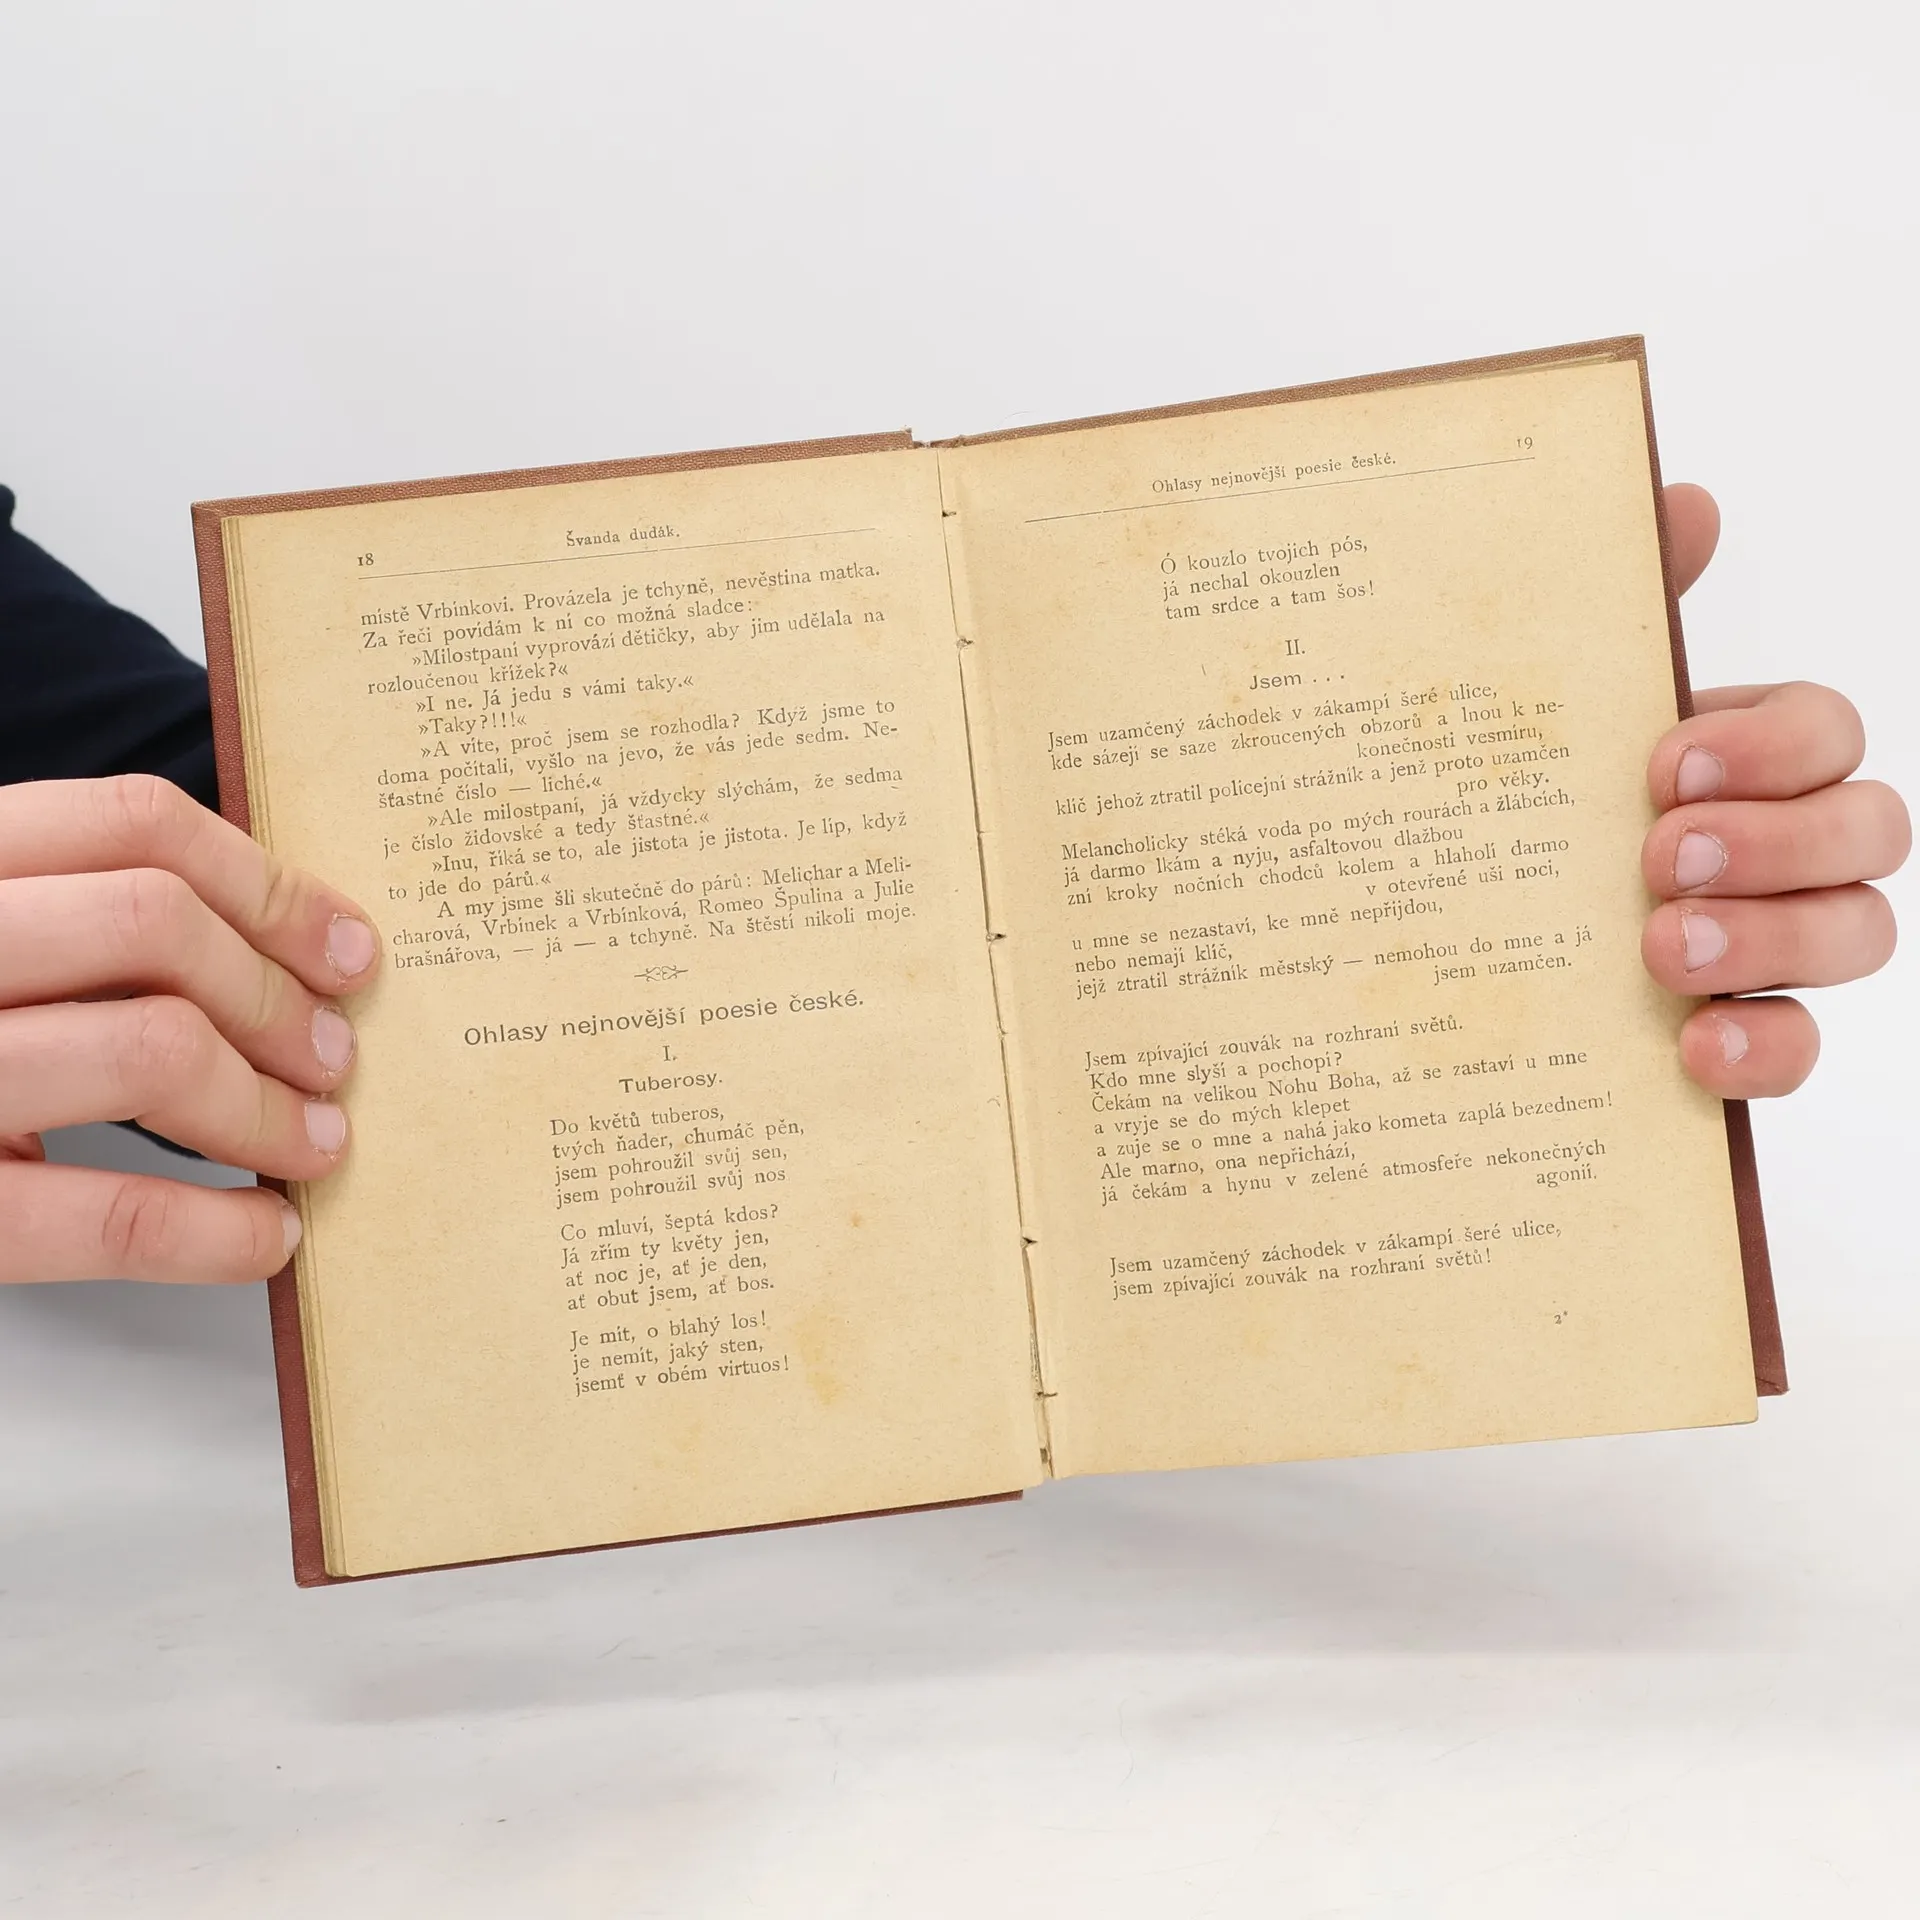 18
Švanda dudák.
místě Vrbínkovi. Provázela je tchyně, nevěstina matka.
Za řeči povídám k ní co možná sladce:
»Milostpaní vyprovází dětičky, aby jim udělala na
rozloučenou křížek?«
»I ne. Já jedu s vámi taky.«
»Taky?!!!«
»A víte, proč jsem se rozhodla? Když jsme to
doma počítali, vyšlo na jevo, že vás jede sedm. Ne-
šťastné číslo — liché.«
»Ale milostpaní, já vždycky slýchám, že sedma
je číslo židovské a tedy šťastné.«
»Inu, říká se to, ale jistota je jistota. Je líp, když
to jde do párů.«
A my jsme šli skutečně do párů: Melichar a Meli-
charová, Vrbínek a Vrbínková, Romeo Špulina a Julie
brašnářova, — já — a tchyně. Na štěstí nikoli moje.
Ohlasy nejnovější poesie české.
I.
Tuberosy.
Do květů tuberos,
tvých ňader, chumáč pěn,
jsem pohroužil svůj sen,
jsem pohroužil svůj nos
Co mluví, šeptá kdos?
Já zřím ty květy jen,
ať noc je, ať je den,
ať obut jsem, ať bos.
Je mít, o blahý los!
je nemít, jaký sten,
jsemť v obém virtuos!
Ohlasy nejnovější poesie české.
19
Ó kouzlo tvojich pós,
já nechal okouzlen
tam srdce a tam šos!
II.
Jsem . . .
Jsem uzamčený záchodek v zákampí šeré ulice,
kde sázejí se saze zkroucených obzorů a lnou k ne-
konečnosti vesmíru,
klíč jehož ztratil policejní strážník a jenž proto uzamčen
pro věky.
Melancholicky stéká voda po mých rourách a žlábcích,
já darmo lkám a nyju, asfaltovou dlažbou
zní kroky nočních chodců kolem a hlaholí darmo
v otevřené uši noci,
u mne se nezastaví, ke mně nepřijdou,
nebo nemají klíč,
jejž ztratil strážník městský — nemohou do mne a já
jsem uzamčen.
Jsem zpívající zouvák na rozhraní světů.
Kdo mne slyší a pochopí?
Čekám na velikou Nohu Boha, až se zastaví u mne
a vryje se do mých klepet
a zuje se o mne a nahá jako kometa zaplá bezednem!
Ale marno, ona nepřichází,
já čekám a hynu v zelené atmosfeře nekonečných
agonií.
Jsem uzamčený záchodek v zákampí šeré ulice,
jsem zpívající zouvák na rozhraní světů!
2*